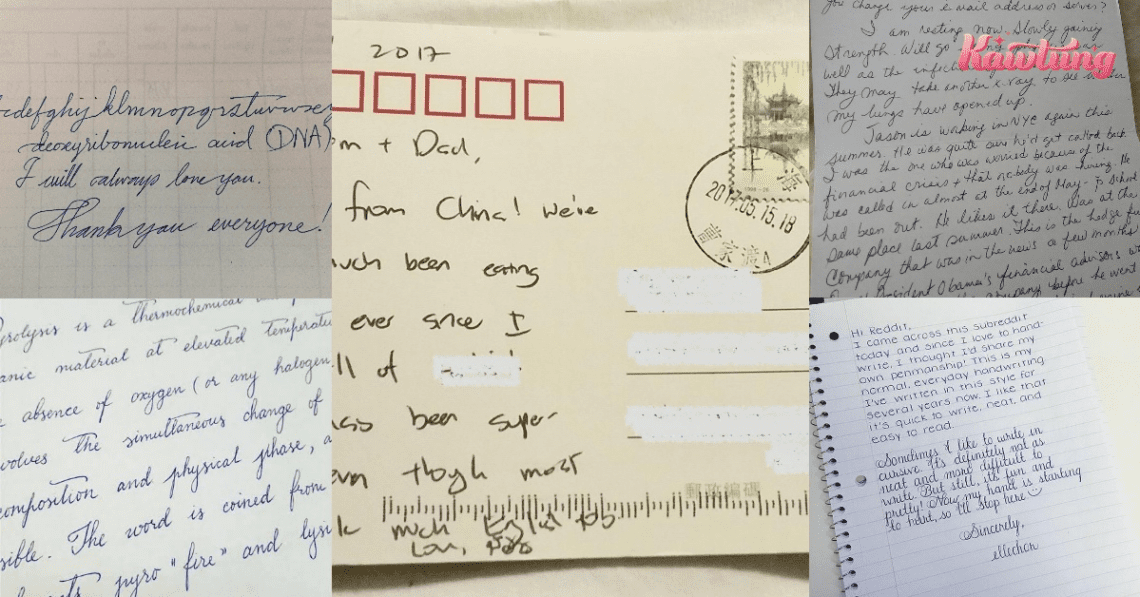 cdefghijklmnopqrstuvwxy
deoxyribonucleic acid (DNA)
I will always love you.
Thank you everyone!
yrolysis is a thermochemical
anic material at elevated temperatu
absence of oxygen (or any halogen
volves the simultaneous change of
composition and physical phase, a
sible. The word is coined from
pyro "fire" and lysi
2017
m + Dad,
from China! We're
uch been eating
ever since I
ll of
been super
ven thogh most
much English too
Love,
2017.05.15.18
郵政編碼
you change your e-mail address or server?
I am resting now. Slowly gaining
strength. Will go
well as the infect
They may take another x-ray to see
my lungs have opened up.
Jason is working in NYC again this
summer. He was quite sure he'd get called back
I was the one who was worried because of the
financial crisis + that nobody was hiring. He
was called in almost at the end of May - Jo School
had been out. He likes it there. Was at the
same place last summer. This is the hedge fu
Company that was in the news a few months
President Obama's financial advisors w
company before he went
Kawtung
Hi Reddit,
I came across this subreddit
today and since I love to hand-
write, I thought I'd share my
own penmanship! This is my
normal, everyday handwriting
I've written in this style for
several years now. I like that
it's quick to write, neat, and
easy to read.
Sometimes I like to write in
cursive. It's definitely not as
neat and more difficult to
write. But still, its fun and
pretty! Now my hand is starting
to hurt, so I'll stop here
Sincerely,
ellechan